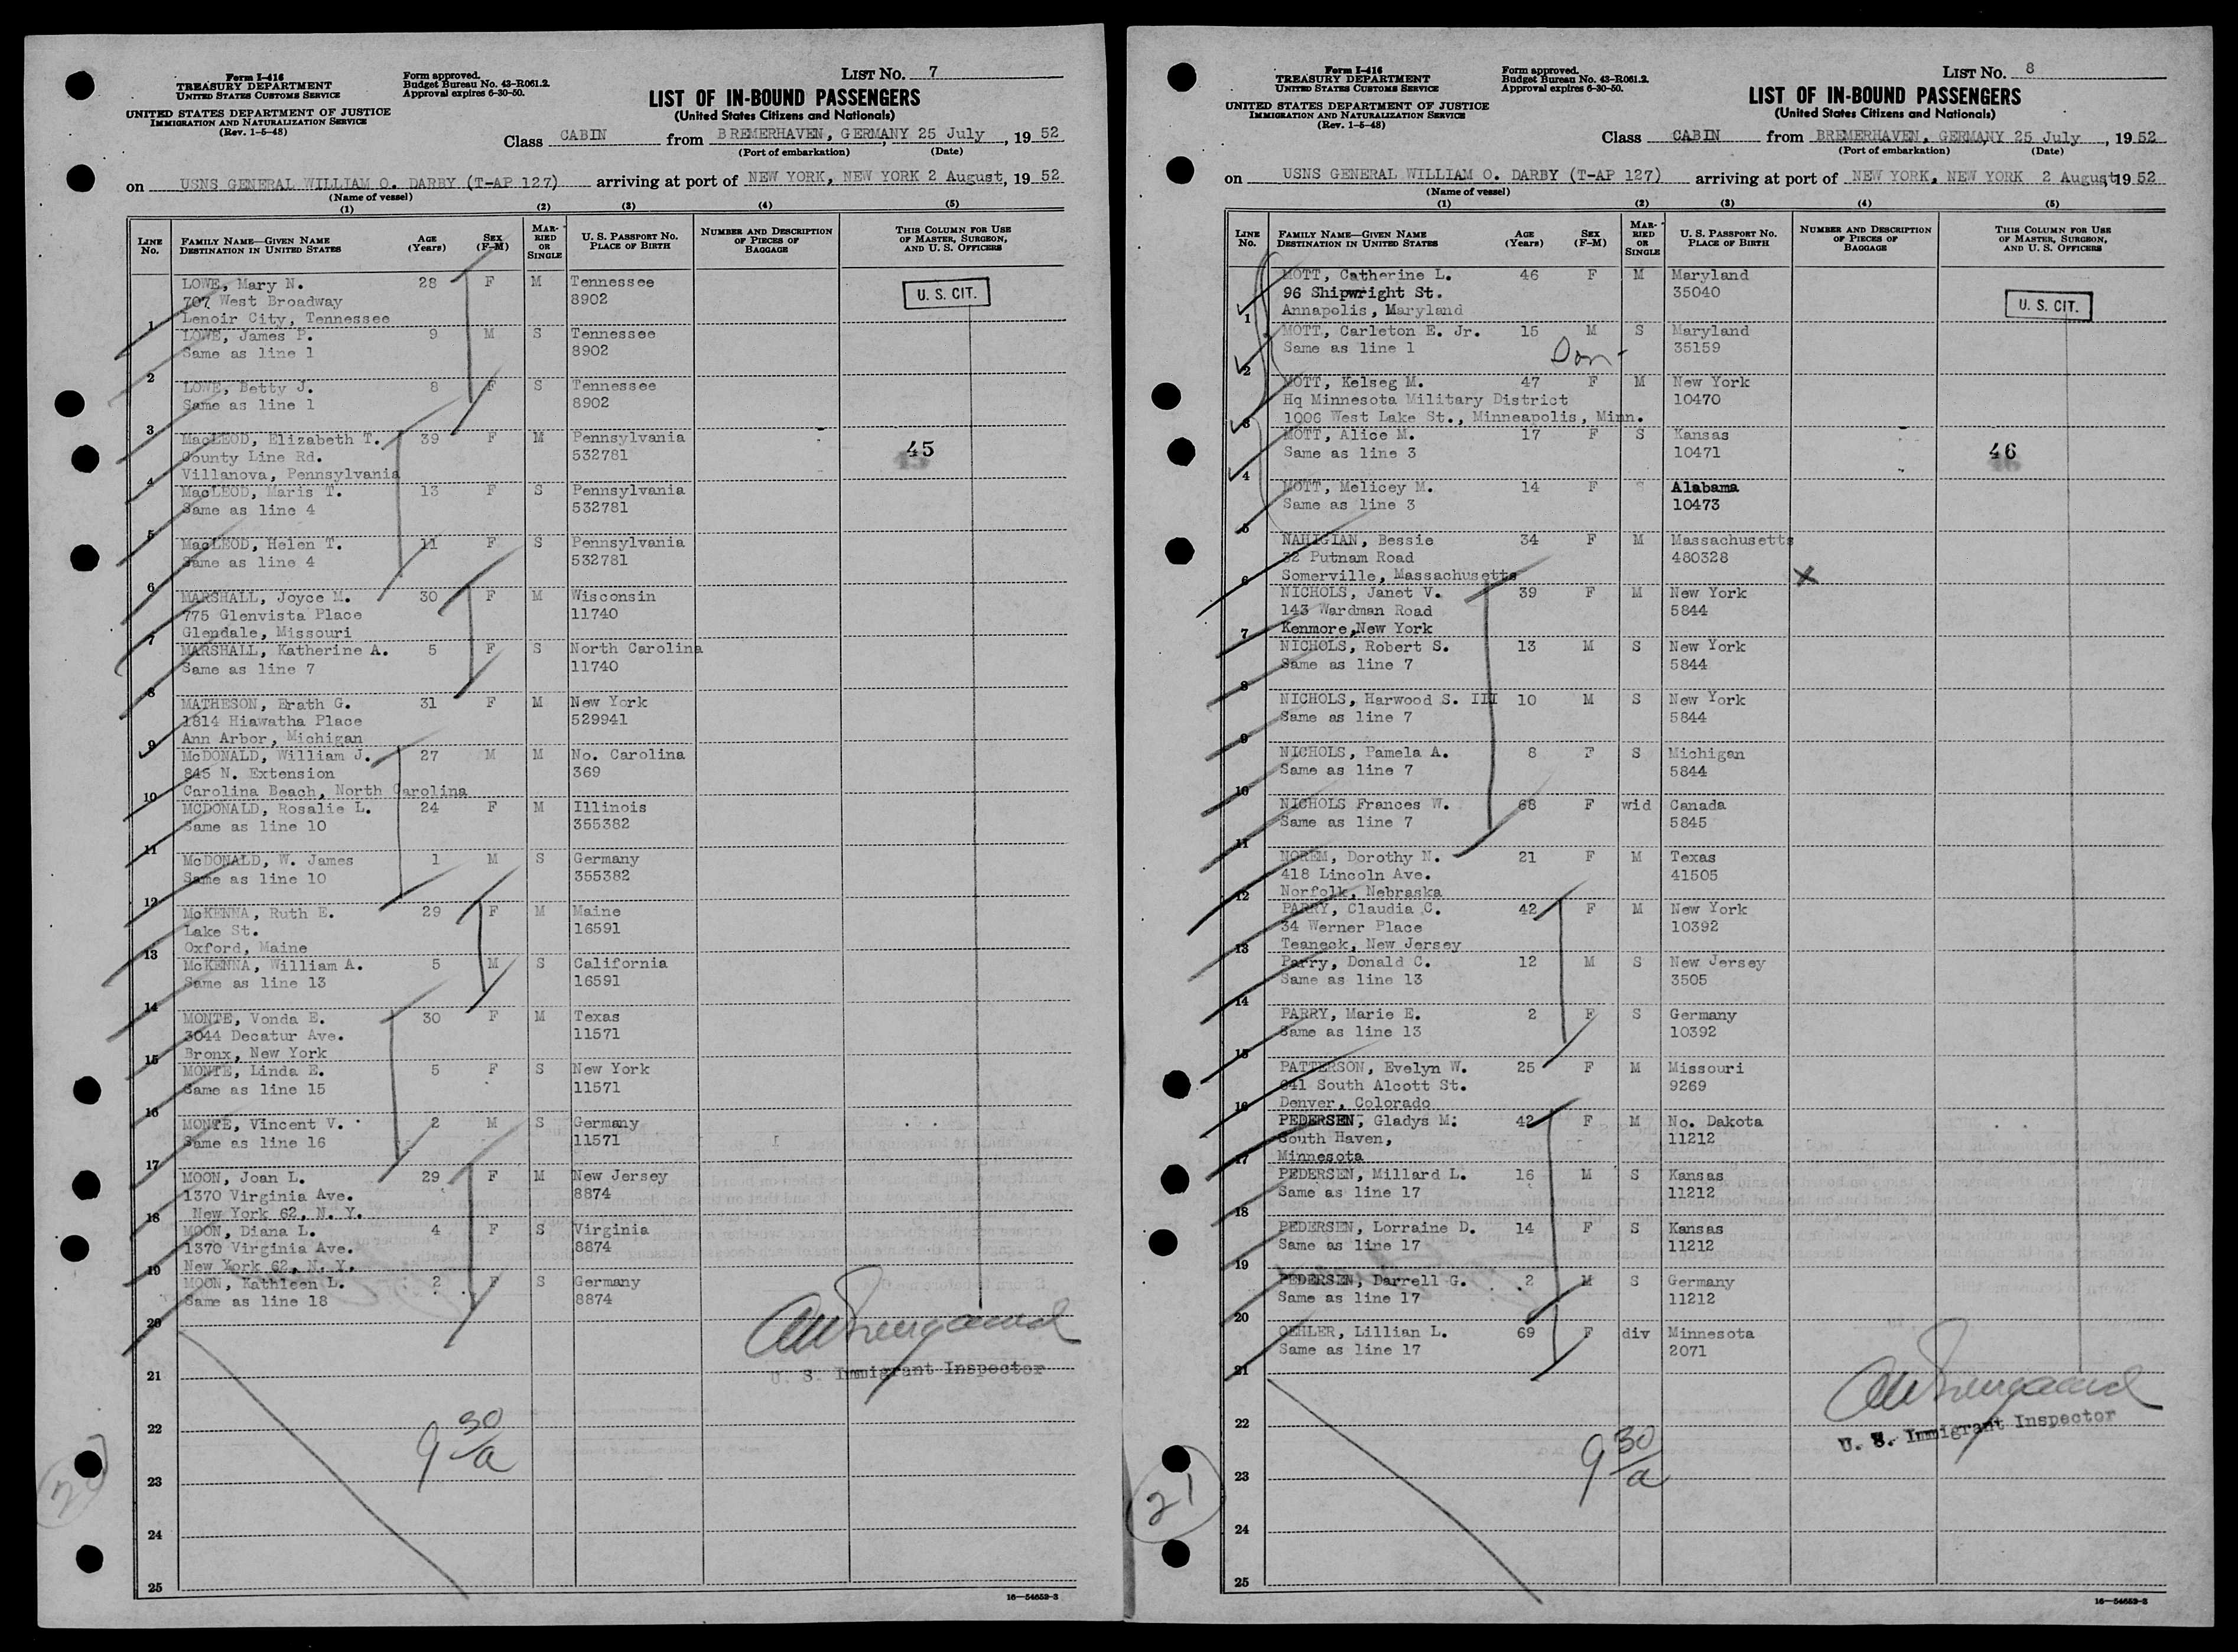 Form I-416
TREASURY DEPARTMENT
UNITED STATES CUSTOMS SERVICE
UNITED STATES DEPARTMENT OF JUSTICE
IMMIGRATION AND NATURALIZATION SERVICE
(Rev. 1-5-48)
Form approved.
Budget Bureau No. 43-R061.2.
Approval expires 6-30-50.
LIST No. 7
LIST OF IN-BOUND PASSENGERS
(United States Citizens and Nationals)
Class CABIN from BREMERHAVEN, GERMANY, 25 July, 1952
(Port of embarkation) (Date)
on USNS GENERAL WILLIAM O. DARBY (T-AP 127) arriving at port of NEW YORK, NEW YORK 2 August, 1952
(Name of vessel)
(1) (2) (3) (4) (5)
LINE No. FAMILY NAME—GIVEN NAME DESTINATION IN UNITED STATES AGE (Years) SEX (F-M) MARRIED OR SINGLE U. S. PASSPORT No. PLACE OF BIRTH NUMBER AND DESCRIPTION OF PIECES OF BAGGAGE THIS COLUMN FOR USE OF MASTER, SURGEON, AND U. S. OFFICERS
LOWE, Mary N. 28 F M Tennessee
707 West Broadway 8902 U. S. CIT.
1 Lenoir City, Tennessee
LOWE, James P. 9 M S Tennessee
Same as line 1 8902
2
LOWE, Betty J. 8 F S Tennessee
Same as line 1 8902
3
MacLEOD, Elizabeth T. 39 F M Pennsylvania
County Line Rd. 532781 45
4 Villanova, Pennsylvania
MacLEOD, Maris T. 13 F S Pennsylvania
Same as line 4 532781
5
MacLEOD, Helen T. 11 F S Pennsylvania
Same as line 4 532781
6
MARSHALL, Joyce M. 30 F M Wisconsin
775 Glenvista Place 11740
7 Glendale, Missouri
MARSHALL, Katherine A. 5 F S North Carolina
Same as line 7 11740
8
MATHESON, Erath G. 31 F M New York
1814 Hiawatha Place 529941
9 Ann Arbor, Michigan
McDONALD, William J. 27 M M No. Carolina
845 N. Extension 369
10 Carolina Beach, North Carolina
MCDONALD, Rosalie L. 24 F M Illinois
Same as line 10 355382
11
McDONALD, W. James 1 M S Germany
Same as line 10 355382
12
McKENNA, Ruth E. 29 F M Maine
Lake St. 16591
13 Oxford, Maine
McKENNA, William A. 5 M S California
Same as line 13 16591
14
MONTE, Vonda E. 30 F M Texas
3044 Decatur Ave. 11571
15 Bronx, New York
MONTE, Linda E. 5 F S New York
Same as line 15 11571
16
MONTE, Vincent V. 2 M S Germany
Same as line 16 11571
17
MOON, Joan L. 29 F M New Jersey
1370 Virginia Ave. 8874
18 New York 62, N. Y.
MOON, Diana L. 4 F S Virginia
1370 Virginia Ave. 8874
19 New York 62, N. Y.
MOON, Kathleen L. 2 F S Germany
Same as line 18 8874
20
21 U. S. Immigrant Inspector
22
9 30/a
23
24
25
16—54652-3
Form I-416
TREASURY DEPARTMENT
UNITED STATES CUSTOMS SERVICE
UNITED STATES DEPARTMENT OF JUSTICE
IMMIGRATION AND NATURALIZATION SERVICE
(Rev. 1-5-48)
Form approved.
Budget Bureau No. 43-R061.2.
Approval expires 6-30-50.
LIST No. 8
LIST OF IN-BOUND PASSENGERS
(United States Citizens and Nationals)
Class CABIN from BREMERHAVEN, GERMANY, 25 July, 1952
(Port of embarkation) (Date)
on USNS GENERAL WILLIAM O. DARBY (T-AP 127) arriving at port of NEW YORK, NEW YORK 2 August, 1952
(Name of vessel)
(1) (2) (3) (4) (5)
LINE No. FAMILY NAME—GIVEN NAME DESTINATION IN UNITED STATES AGE (Years) SEX (F-M) MARRIED OR SINGLE U. S. PASSPORT No. PLACE OF BIRTH NUMBER AND DESCRIPTION OF PIECES OF BAGGAGE THIS COLUMN FOR USE OF MASTER, SURGEON, AND U. S. OFFICERS
MOTT, Catherine L. 46 F M Maryland
96 Shipwright St. 35040 U. S. CIT.
1 Annapolis, Maryland
MOTT, Carleton E. Jr. 15 M S Maryland
Same as line 1 35159
2
MOTT, Kelseg M. 47 F M New York
Hq Minnesota Military District 10470
3 1006 West Lake St., Minneapolis, Minn.
MOTT, Alice M. 17 F S Kansas
Same as line 3 10471 46
4
MOTT, Melicey M. 14 F S Alabama
Same as line 3 10473
5
NAHIGIAN, Bessie 34 F M Massachusetts
32 Putnam Road 480328
6 Somerville, Massachusetts X
NICHOLS, Janet V. 39 F M New York
143 Wardman Road 5844
7 Kenmore, New York
NICHOLS, Robert S. 13 M S New York
Same as line 7 5844
8
NICHOLS, Harwood S. III 10 M S New York
Same as line 7 5844
9
NICHOLS, Pamela A. 8 F S Michigan
Same as line 7 5844
10
NICHOLS Frances W. 68 F wid Canada
Same as line 7 5845
11
NOREM, Dorothy N. 21 F M Texas
418 Lincoln Ave. 41505
12 Norfolk, Nebraska
PARRY, Claudia C. 42 F M New York
34 Werner Place 10392
13 Teaneck, New Jersey
Parry, Donald C. 12 M S New Jersey
Same as line 13 3505
14
PARRY, Marie E. 2 F S Germany
Same as line 13 10392
15
PATTERSON, Evelyn W. 25 F M Missouri
South Alcott St. 9269
16 Denver, Colorado
PEDERSEN, Gladys M. 42 F M No. Dakota
South Haven, 11212
17 Minnesota
PEDERSEN, Millard L. 16 M S Kansas
Same as line 17 11212
18
PEDERSEN, Lorraine D. 14 F S Kansas
Same as line 17 11212
19
PEDERSEN, Darrell G. 2 M S Germany
Same as line 17 11212
20
OEHLER, Lillian L. 69 F div Minnesota
Same as line 17 2071
21
22 U. S. Immigrant Inspector
9 30/a
23
21
24
25
16—54652-3